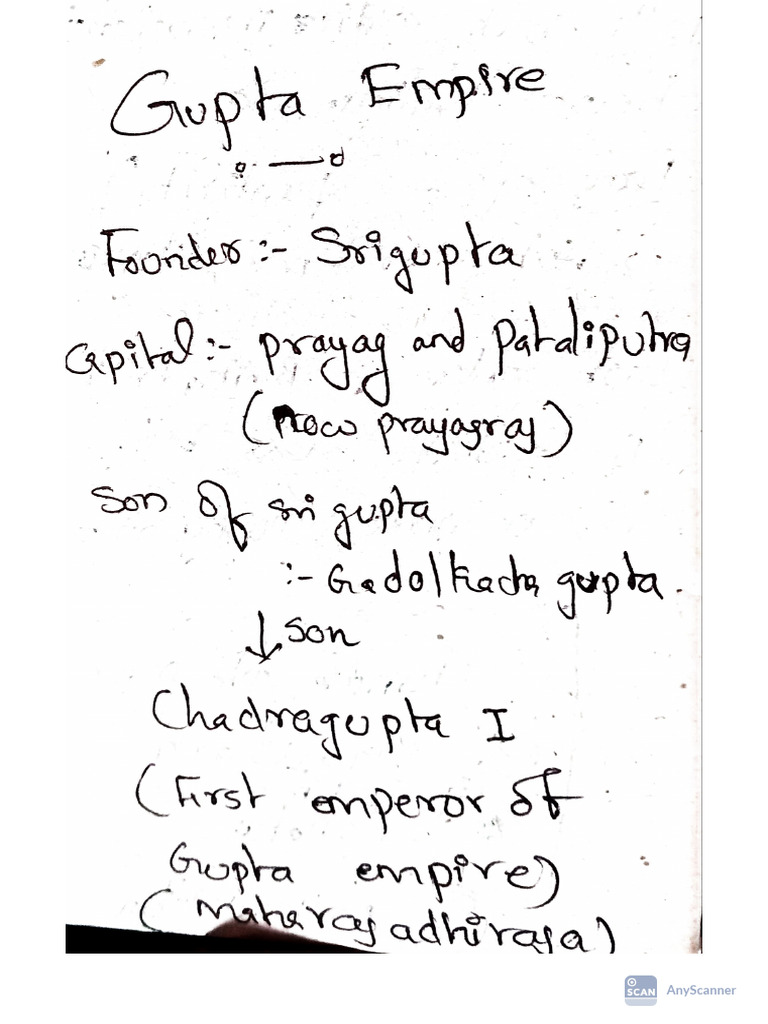 Gupta Empire
Founder :- Srigupta
Capital :- Prayag and Pataliputra
(Now prayagraj)
Son of Sri gupta
:- Gadolkacha gupta.
↓ Son
Chadragupta I
(First emperor of
Gupta empire)
(Maharajadhiraja)
SCAN AnyScanner